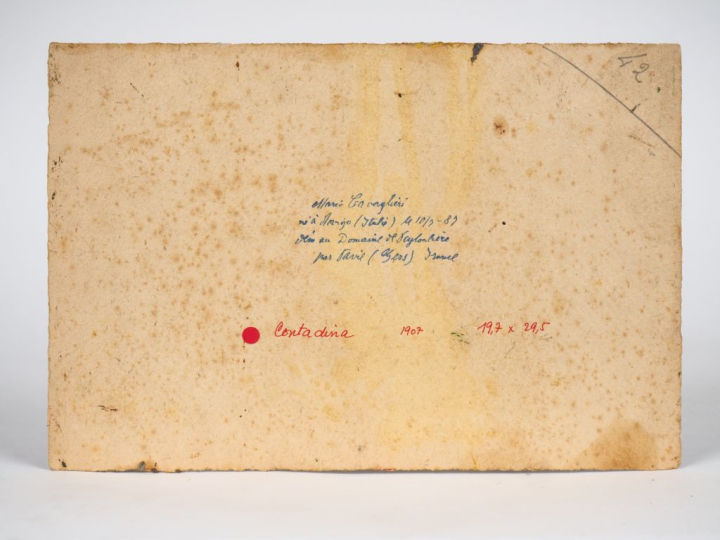 42
Mario Cavaglieri
né à Rovigo (Italie) le 10/7-87
au Domaine de Peyloubère
par Pavie (Gers) France
Contadina 1907 19,7 x 29,5